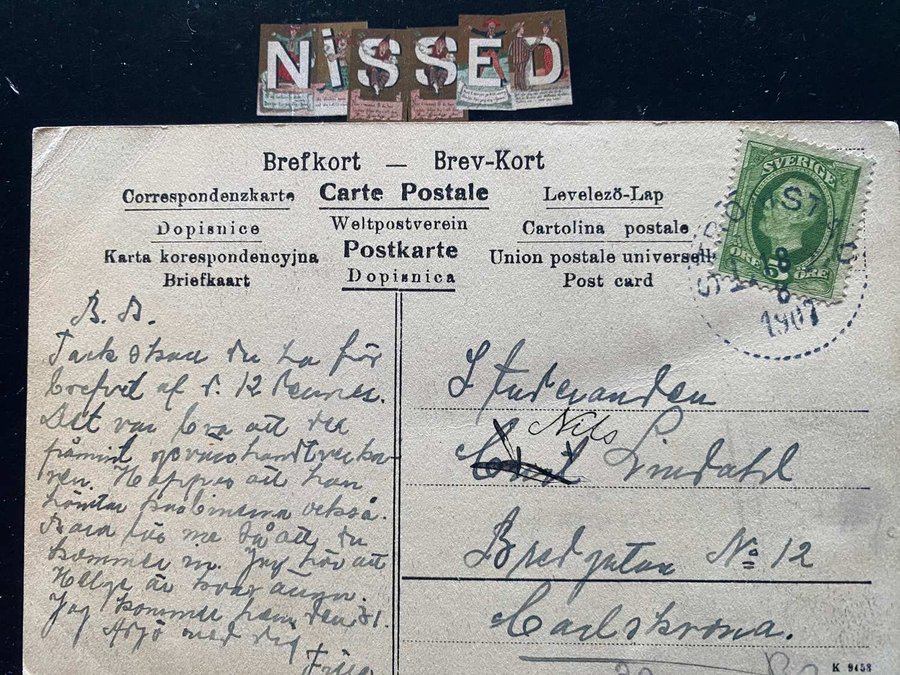 NiSSED
Brefkort — Brev-Kort
Correspondenzkarte Carte Postale Levelező-Lap
Dopisnice Weltpostverein Cartolina postale
Karta korespondencyjna Postkarte Union postale universelle
Briefkaart Dopisnica Post card
SVERIGE
ÖRE 5 ÖRE
18
8
1907
B. B.
Tack skall du ha för
brefvet af d. 12 dennes.
Det var bra att du
påmint
Hoppas att han
också.
Bara för me så att du
kommer in. Jag hör att
Helge är kvar ännu.
Jag kommer hem den 31.
Adjö med dig
Studeranden
Nils
Lindahl
Bredgatan No 12
Carlskrona.
K 9453